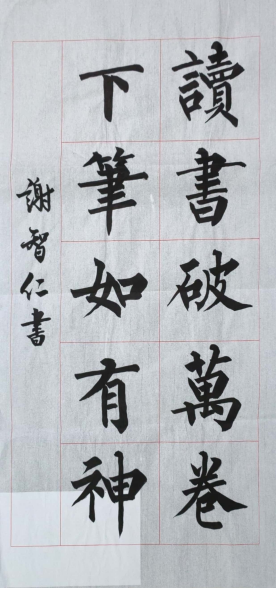 讀書破萬卷
下筆如有神
謝智仁書